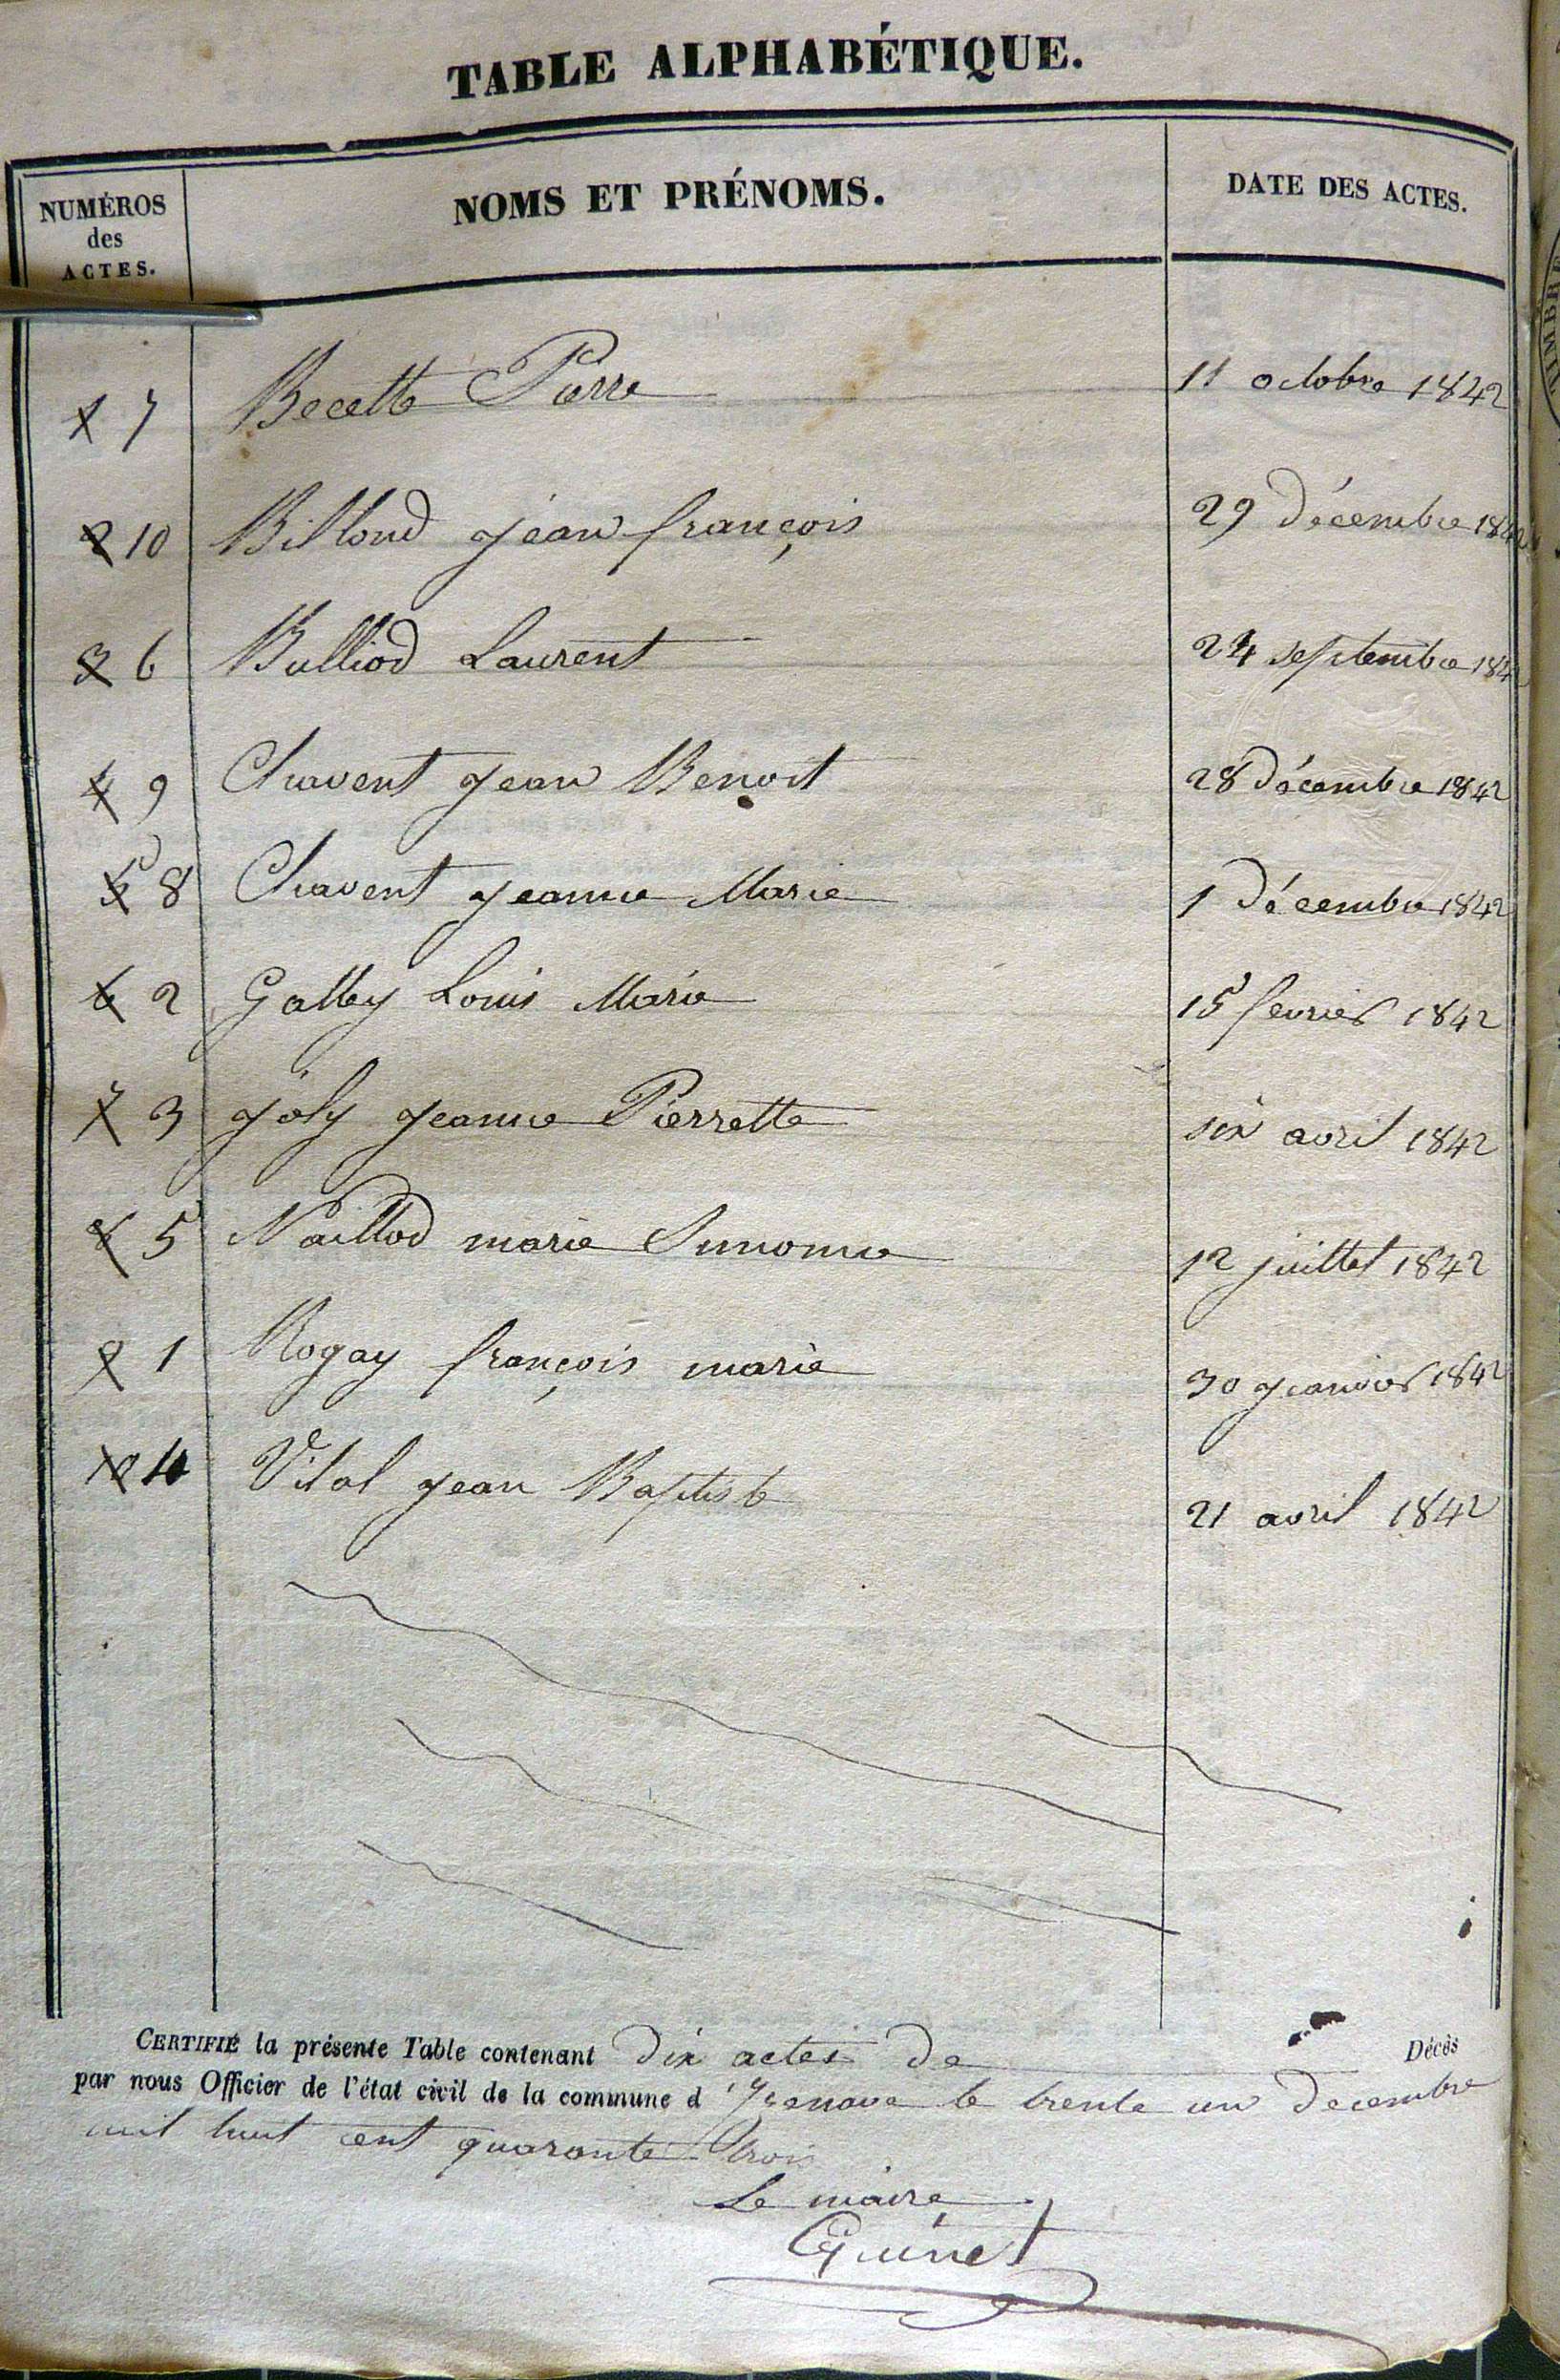 TABLE ALPHABÉTIQUE.
NUMÉROS des ACTES. NOMS ET PRÉNOMS. DATE DES ACTES.
1 7 Becette Pierre 11 octobre 1842
2 10 Billond jean françois 29 décembre 1842
3 6 Bulliod Laurent 24 septembre 184
4 9 Chavent jean Benoit 28 décembre 1842
5 8 Chavent jeanne Marie 1 Décembre 1842
6 2 Galley Louis Marie 15 fevrier 1842
7 3 joly jeanne Pierrette six avril 1842
8 5 Naillod marie 12 juillet 1842
9 1 Rogay françois marie 30 jeanvier 1842
10 4 Vital jean Baptiste 21 avril 1842
CERTIFIÉ la présente Table contenant dix actes de Décès
par nous Officier de l'état civil de la commune d 'izenave le trente un decembre
mil huit cent quarante trois
Le maire
Guinet